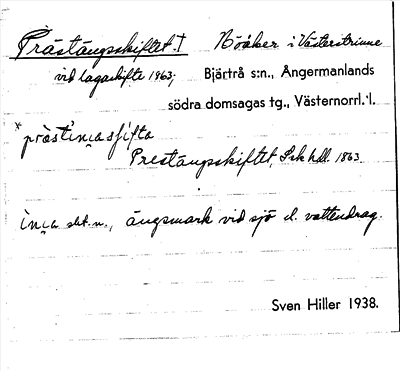 Prästängsskiftet.† Böåker i Västerstrinne
vid lagaskifte 1863; Bjärtrå s:n., Ångermanlands
södra domsagas tg., Västernorrl. l.
Prestängsskiftet, Lsk hdl. 1863.
sbt. n., ängsmark vid sjö el. vattendrag.
Sven Hiller 1938.